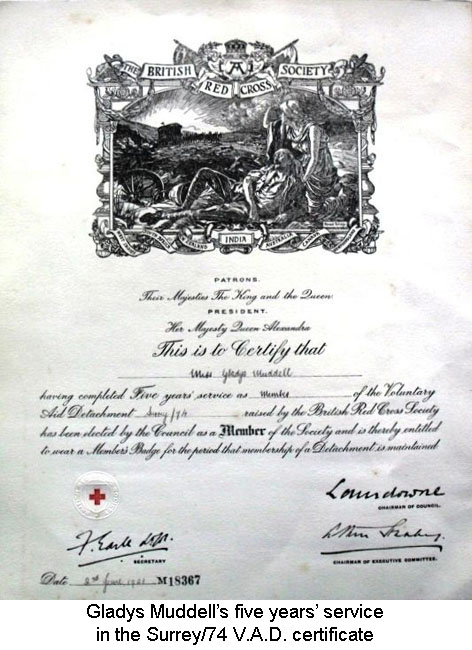 THE BRITISH RED CROSS SOCIETY
NEW ZEALAND INDIA AUSTRALIA CANADA
PATRONS.
Their Majesties The King and the Queen
PRESIDENT.
Her Majesty Queen Alexandra
This is to Certify that
Miss Gladys Muddell
having completed Five years' service as Member of the Voluntary
Aid Detachment Surrey/74 raised by the British Red Cross Society
has been elected by the Council as a Member of the Society and is thereby entitled
to wear a Members Badge for the period that membership of a Detachment is maintained
Lansdowne
CHAIRMAN OF COUNCIL.
SECRETARY
CHAIRMAN OF EXECUTIVE COMMITTEE.
Date 2nd June 1921 M18367
Gladys Muddell's five years' service
in the Surrey/74 V.A.D. certificate